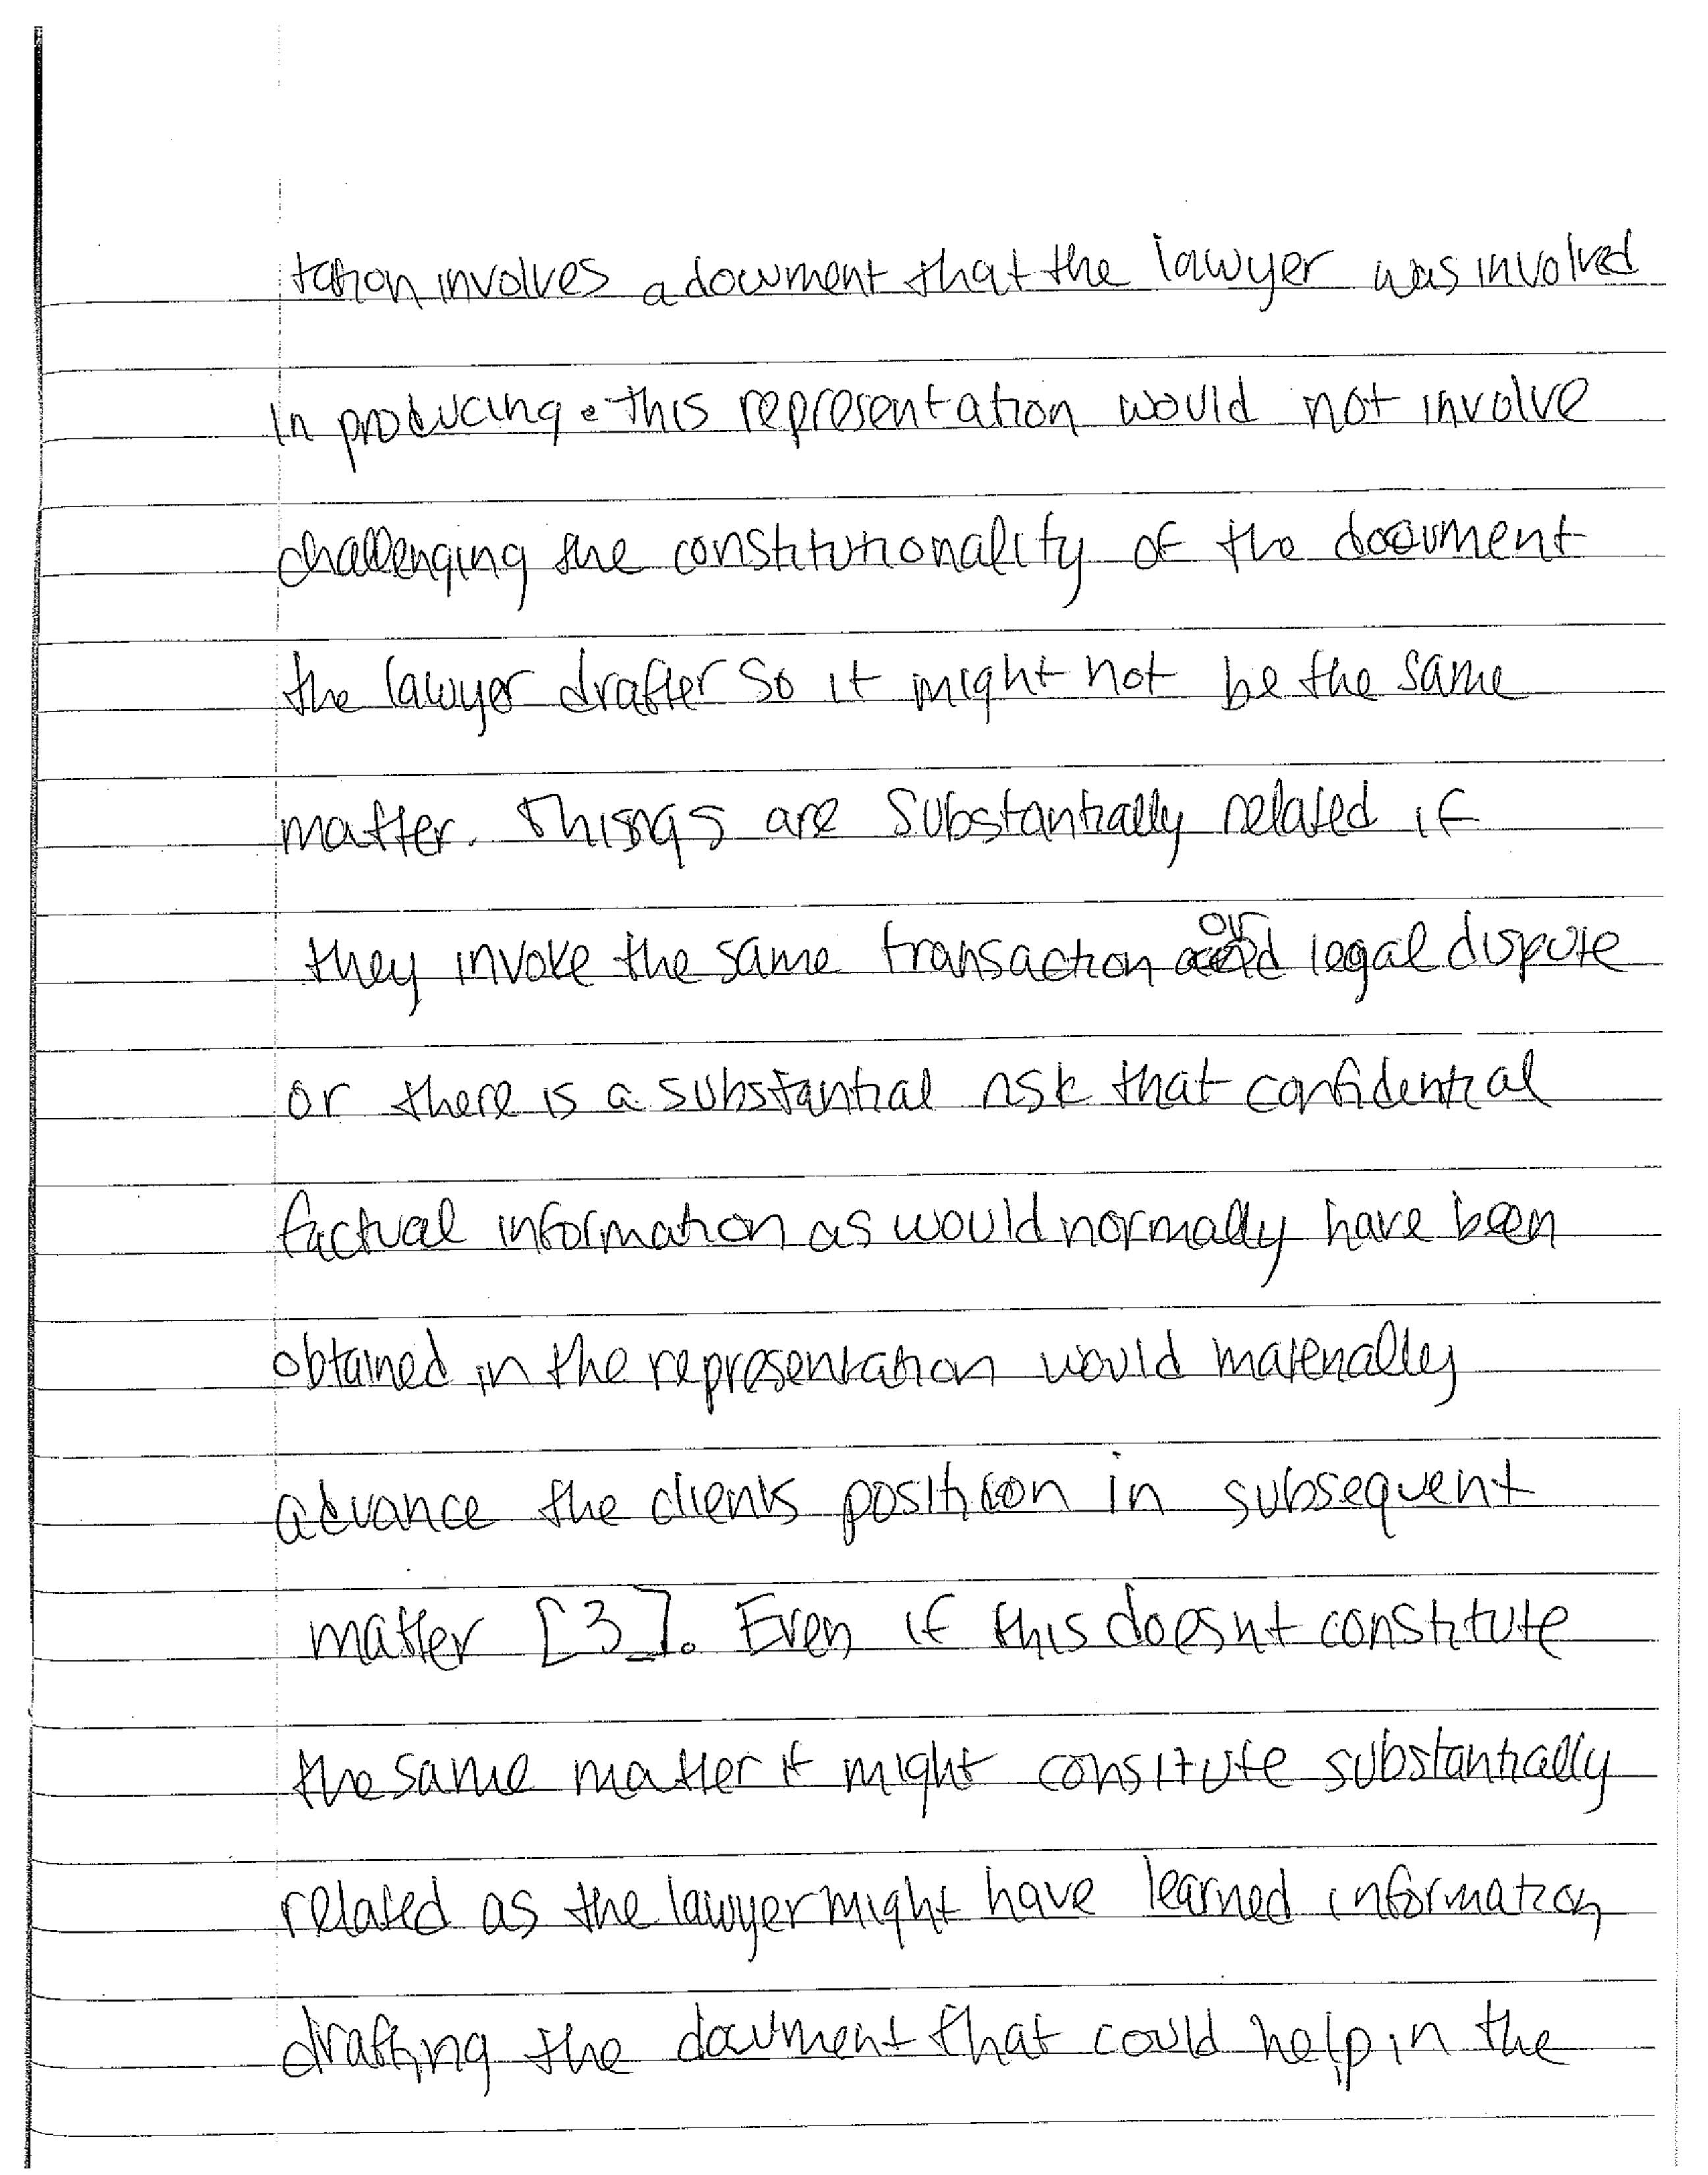 tation involves a document that the lawyer was involved
in producing. this representation would not involve
challenging the constitutionality of the document
the lawyer drafter so it might not be the same
matter. Things are substantially related if
they invoke the same transaction or legal dispute
or there is a substantial risk that confidential
factual information as would normally have been
obtained in the representation would materially
advance the clients position in subsequent
matter [3]. Even if this doesnt constitute
the same matter it might consitute substantially
related as the lawyer might have learned information
drafting the document that could help in the